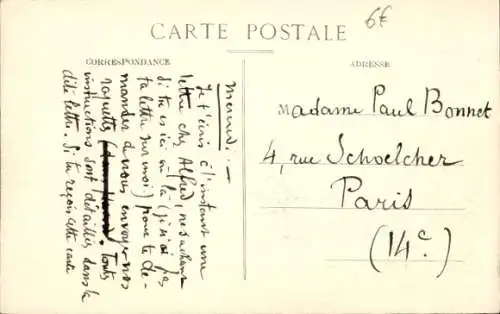 6€
CARTE POSTALE
CORRESPONDANCE
ADRESSE
Mercredi. —
Je t'écris à l'instant une
lettre chez Alfred, ne sachant
si tu es ici ou là (j'ai pas
ta lettre sur moi) pour te de-
mander de nous envoyer nos
raquettes. Toutes
instructions sont détaillées dans la
dite lettre. Si tu reçois cette carte
Madame Paul Bonnet
4, rue Schoelcher
Paris
(14e)